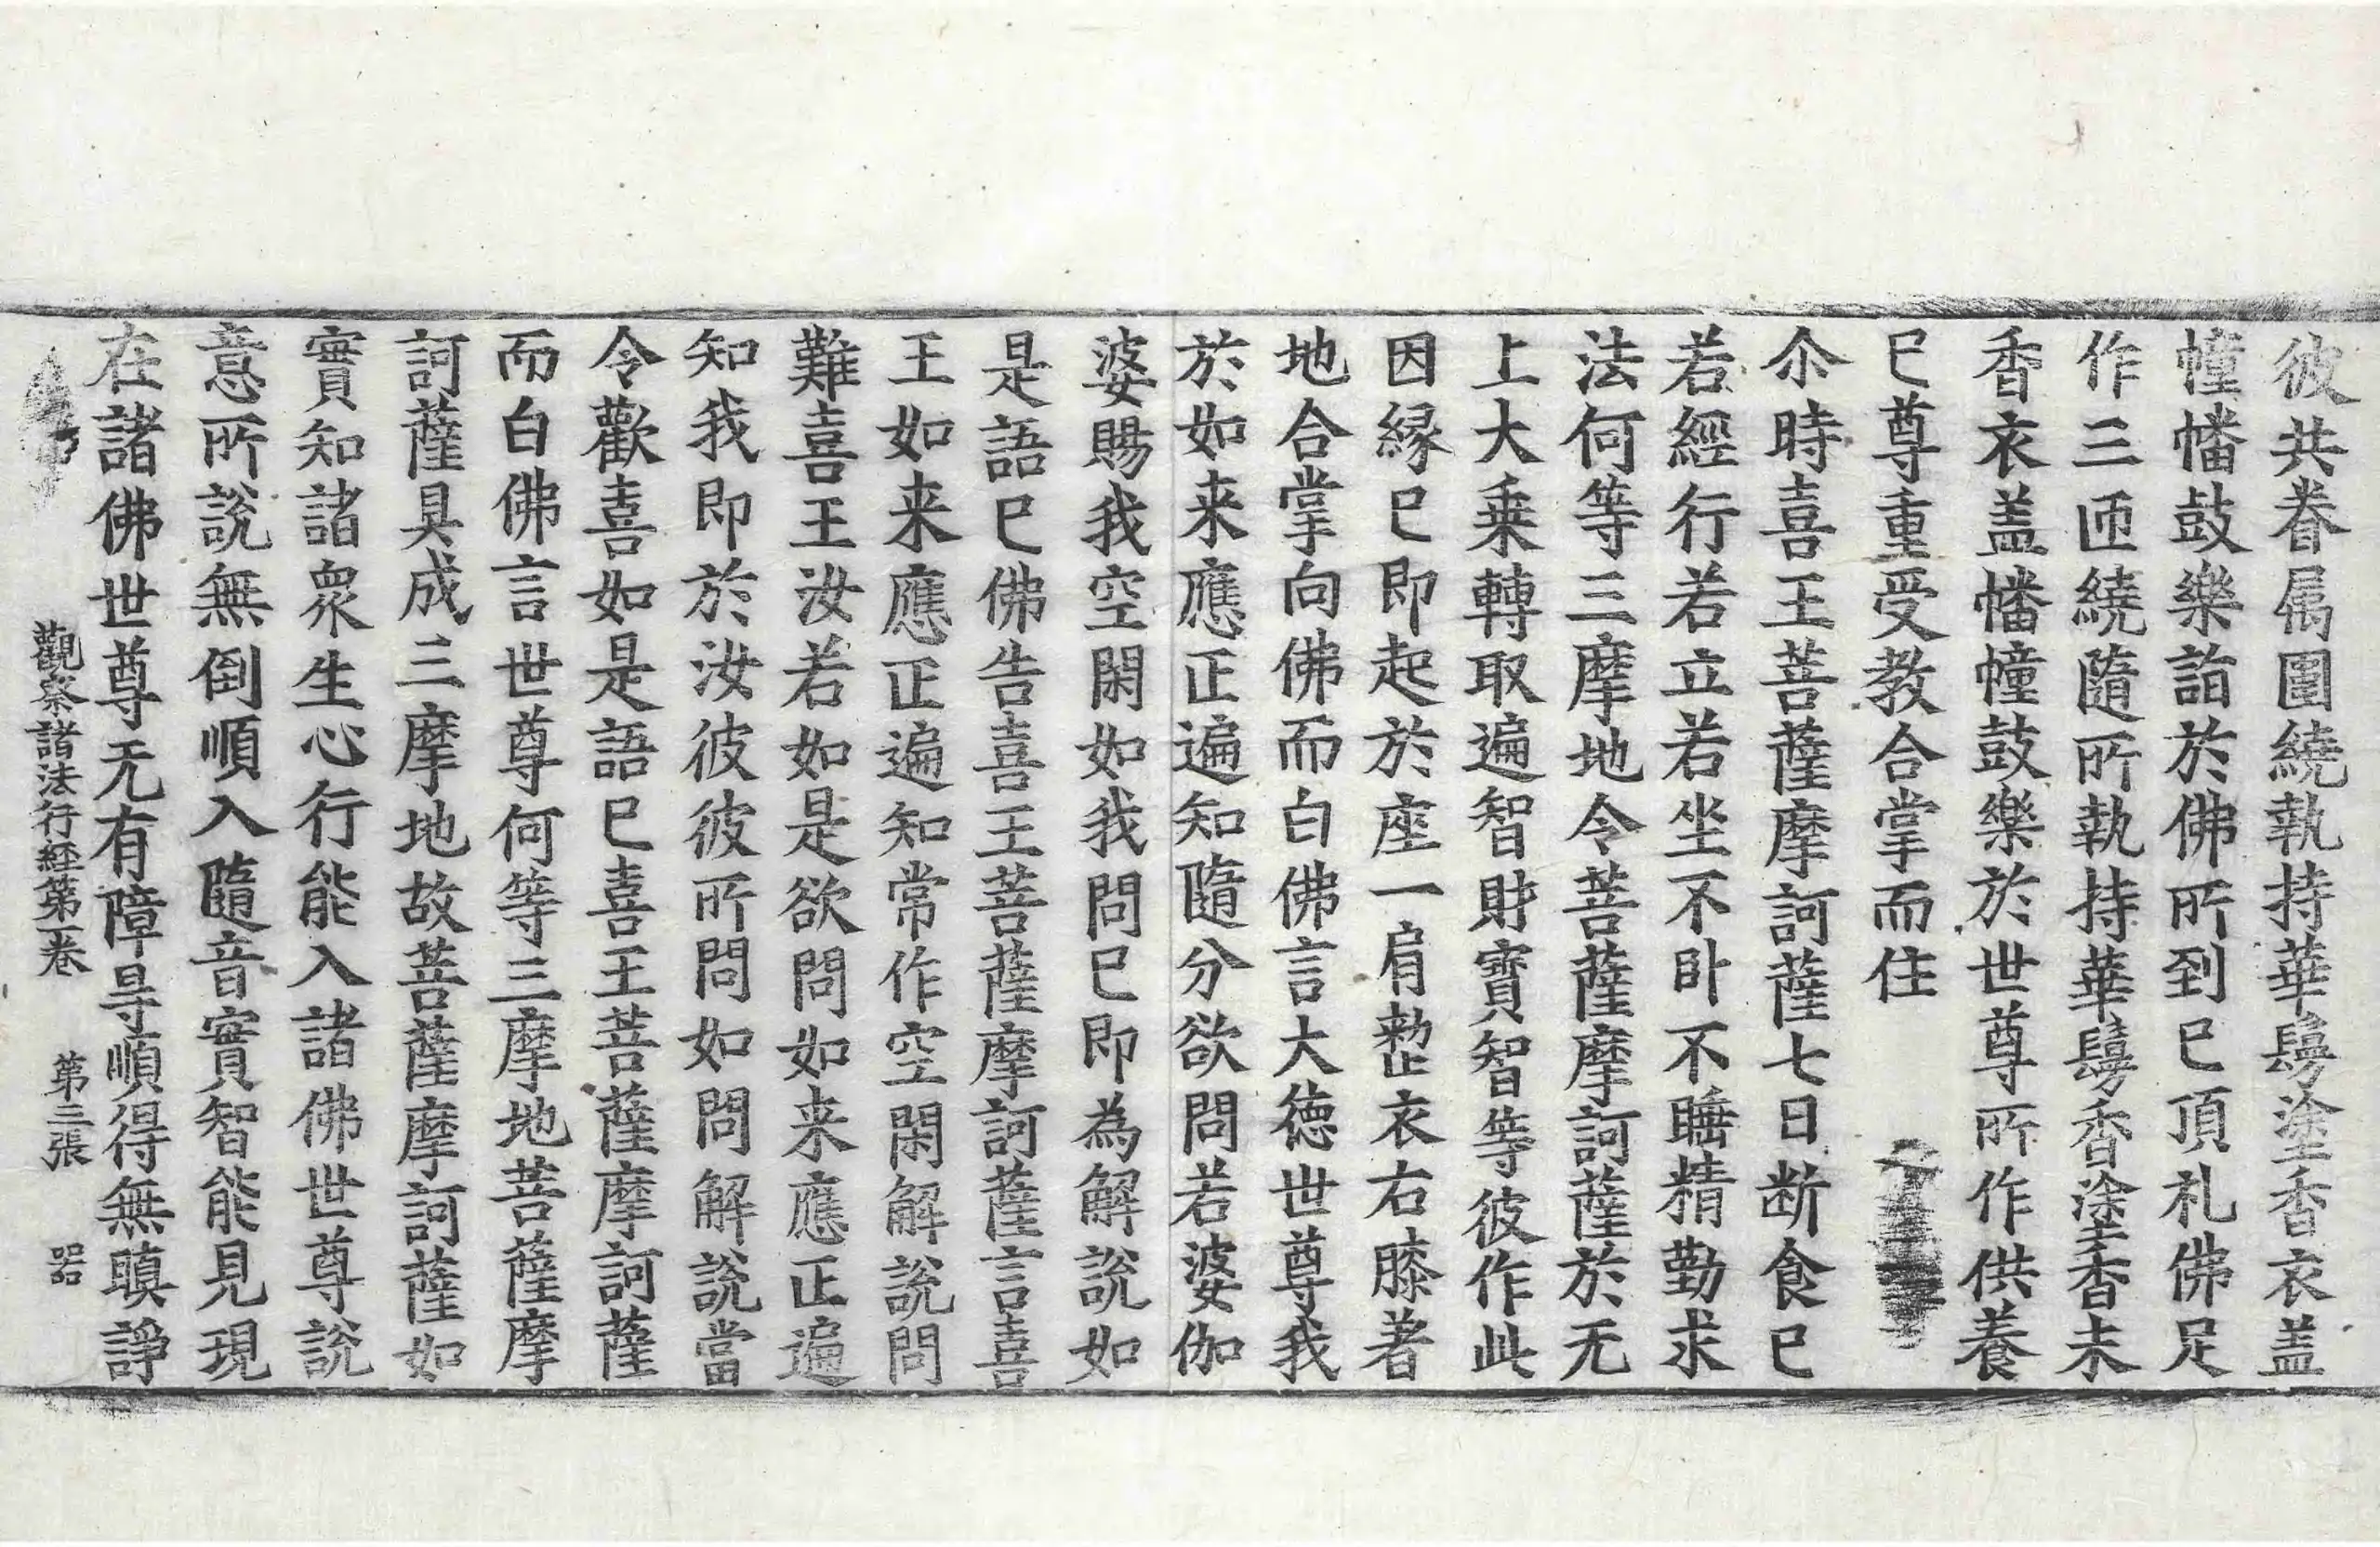 彼共眷属圍繞執持華鬘塗香衣盖
幢幡鼓樂詣於佛所到已頂礼佛足
作三匝繞隨所執持華鬘香塗香末
香衣盖幡幢鼓樂於世尊所作供養
已尊重受教合掌而住
尒時喜王菩薩摩訶薩七日断食已
若經行若立若坐不卧不睡精勤求
法何等三摩地令菩薩摩訶薩於无
上大乗轉取遍智財寶智等彼作此
因緣已即起於座一肩整衣右膝著
地合掌向佛而白佛言大德世尊我
於如来應正遍知隨分欲問若婆伽
婆賜我空閑如我問已即為解說如
是語已佛告喜王菩薩摩訶薩言喜
王如来應正遍知常作空閑解說問
難喜王汝若如是欲問如来應正遍
知我即於汝彼彼所問如問解說當
令歡喜如是語已喜王菩薩摩訶薩
而白佛言世尊何等三摩地菩薩摩
訶薩具成三摩地故菩薩摩訶薩如
實知諸衆生心行能入諸佛世尊說
意所說無倒順入隨音實智能見現
在諸佛世尊无有障㝵順得無瞋諍
觀察諸法行經第一卷 第三張 器